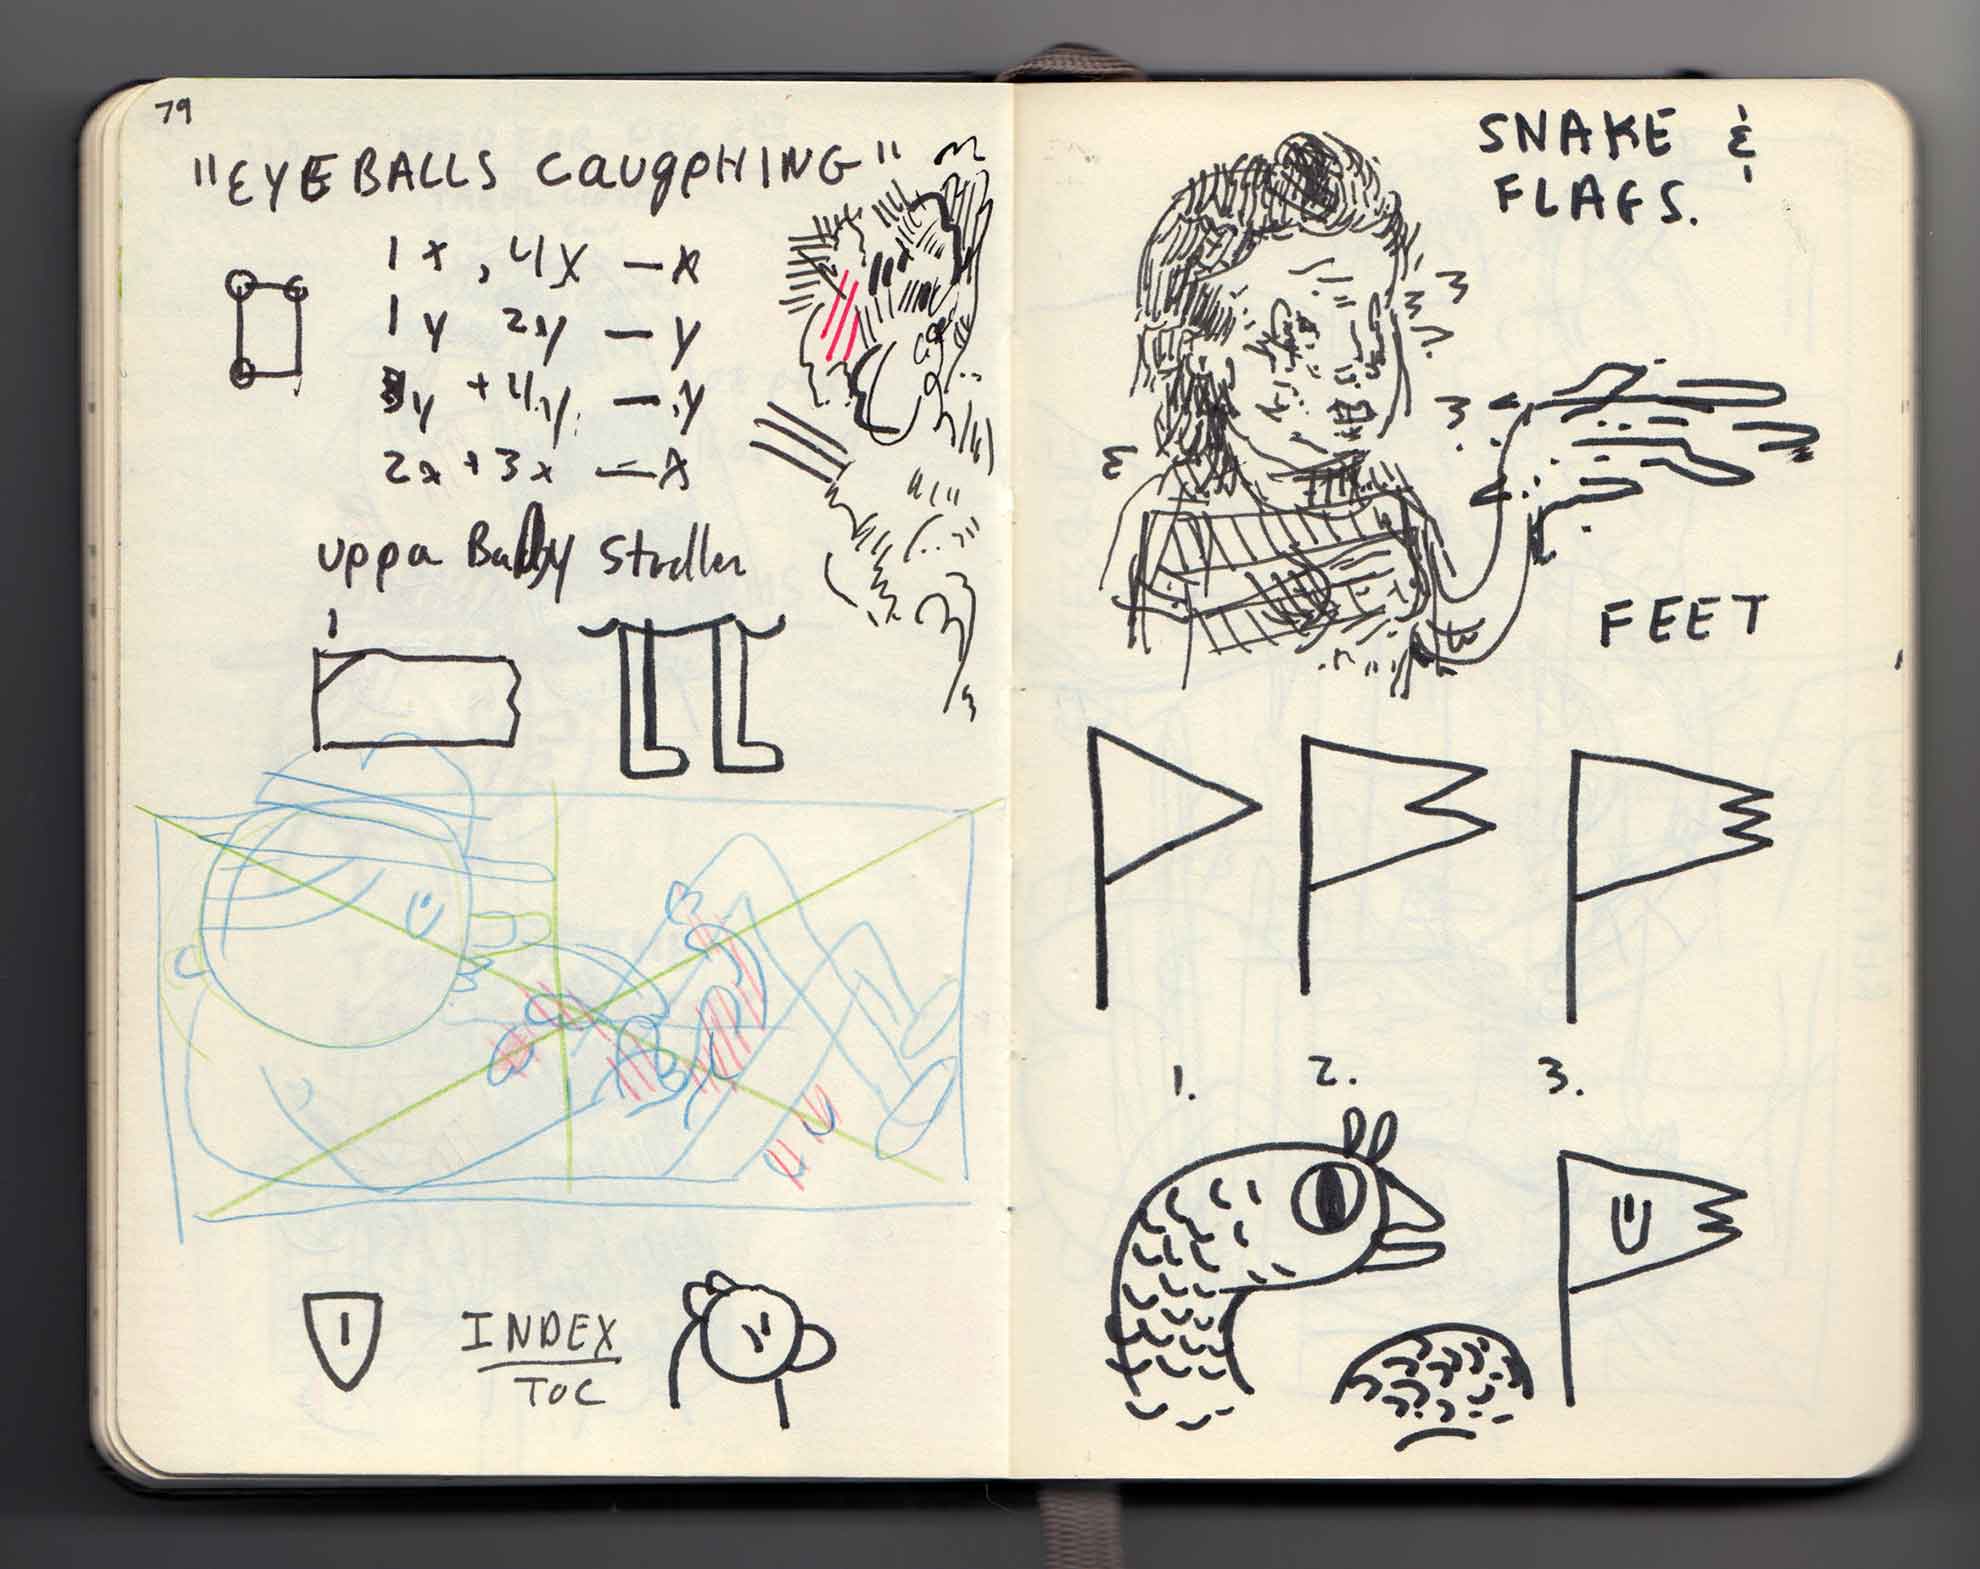 79
"EYEBALLS CaugpHING"
1x, 4x — x
1y 2y — y
3y + 4y. — y
2x + 3x — x
uppa Baby Stroller
1
INDEX
TOC
SNAKE &
FLAGS.
FEET
1. 2. 3.